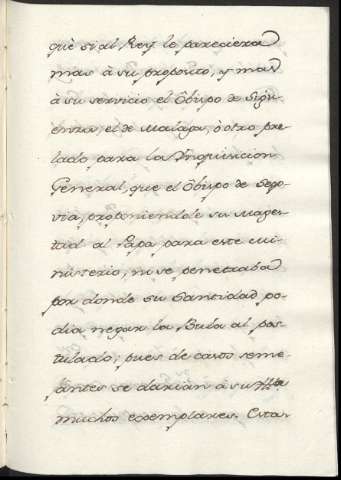 què si al Rey le pareciera
mas à su proposito, y mas
à su servicio el Obispo de Sigu-
enza, el de Malaga, ò otro pre-
lado para la Inquisicion
General, que el Obispo de Sego-
via, proponiendole su Mages-
tad al Papa para este mi-
nisterio, ni se penetraba
por donde su Santidad po-
dia negar la Bula al pos-
tulado; pues de casos seme-
jantes se darian à su
muchos exemplares. Esta-